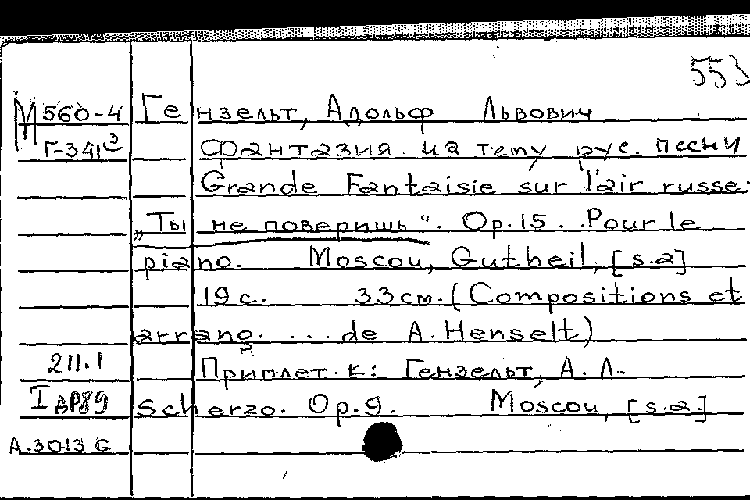 553
М 560-4 Гензельт, Адольф Львович
Г-341 3 Фантазия на тему рус. песни
Grande Fantaisie sur l'air russe:
„Ты не поверишь“. Op.15. Pour le
piano. Moscou, Gutheil, [s.a]
19 с. 33 см. (Compositions et
arrang. ... de A. Henselt)
211.1 Приплет. к: Гензельт, А. Л.
Scherzo. Op.9. Moscou, [s.a.]
А.3013 G